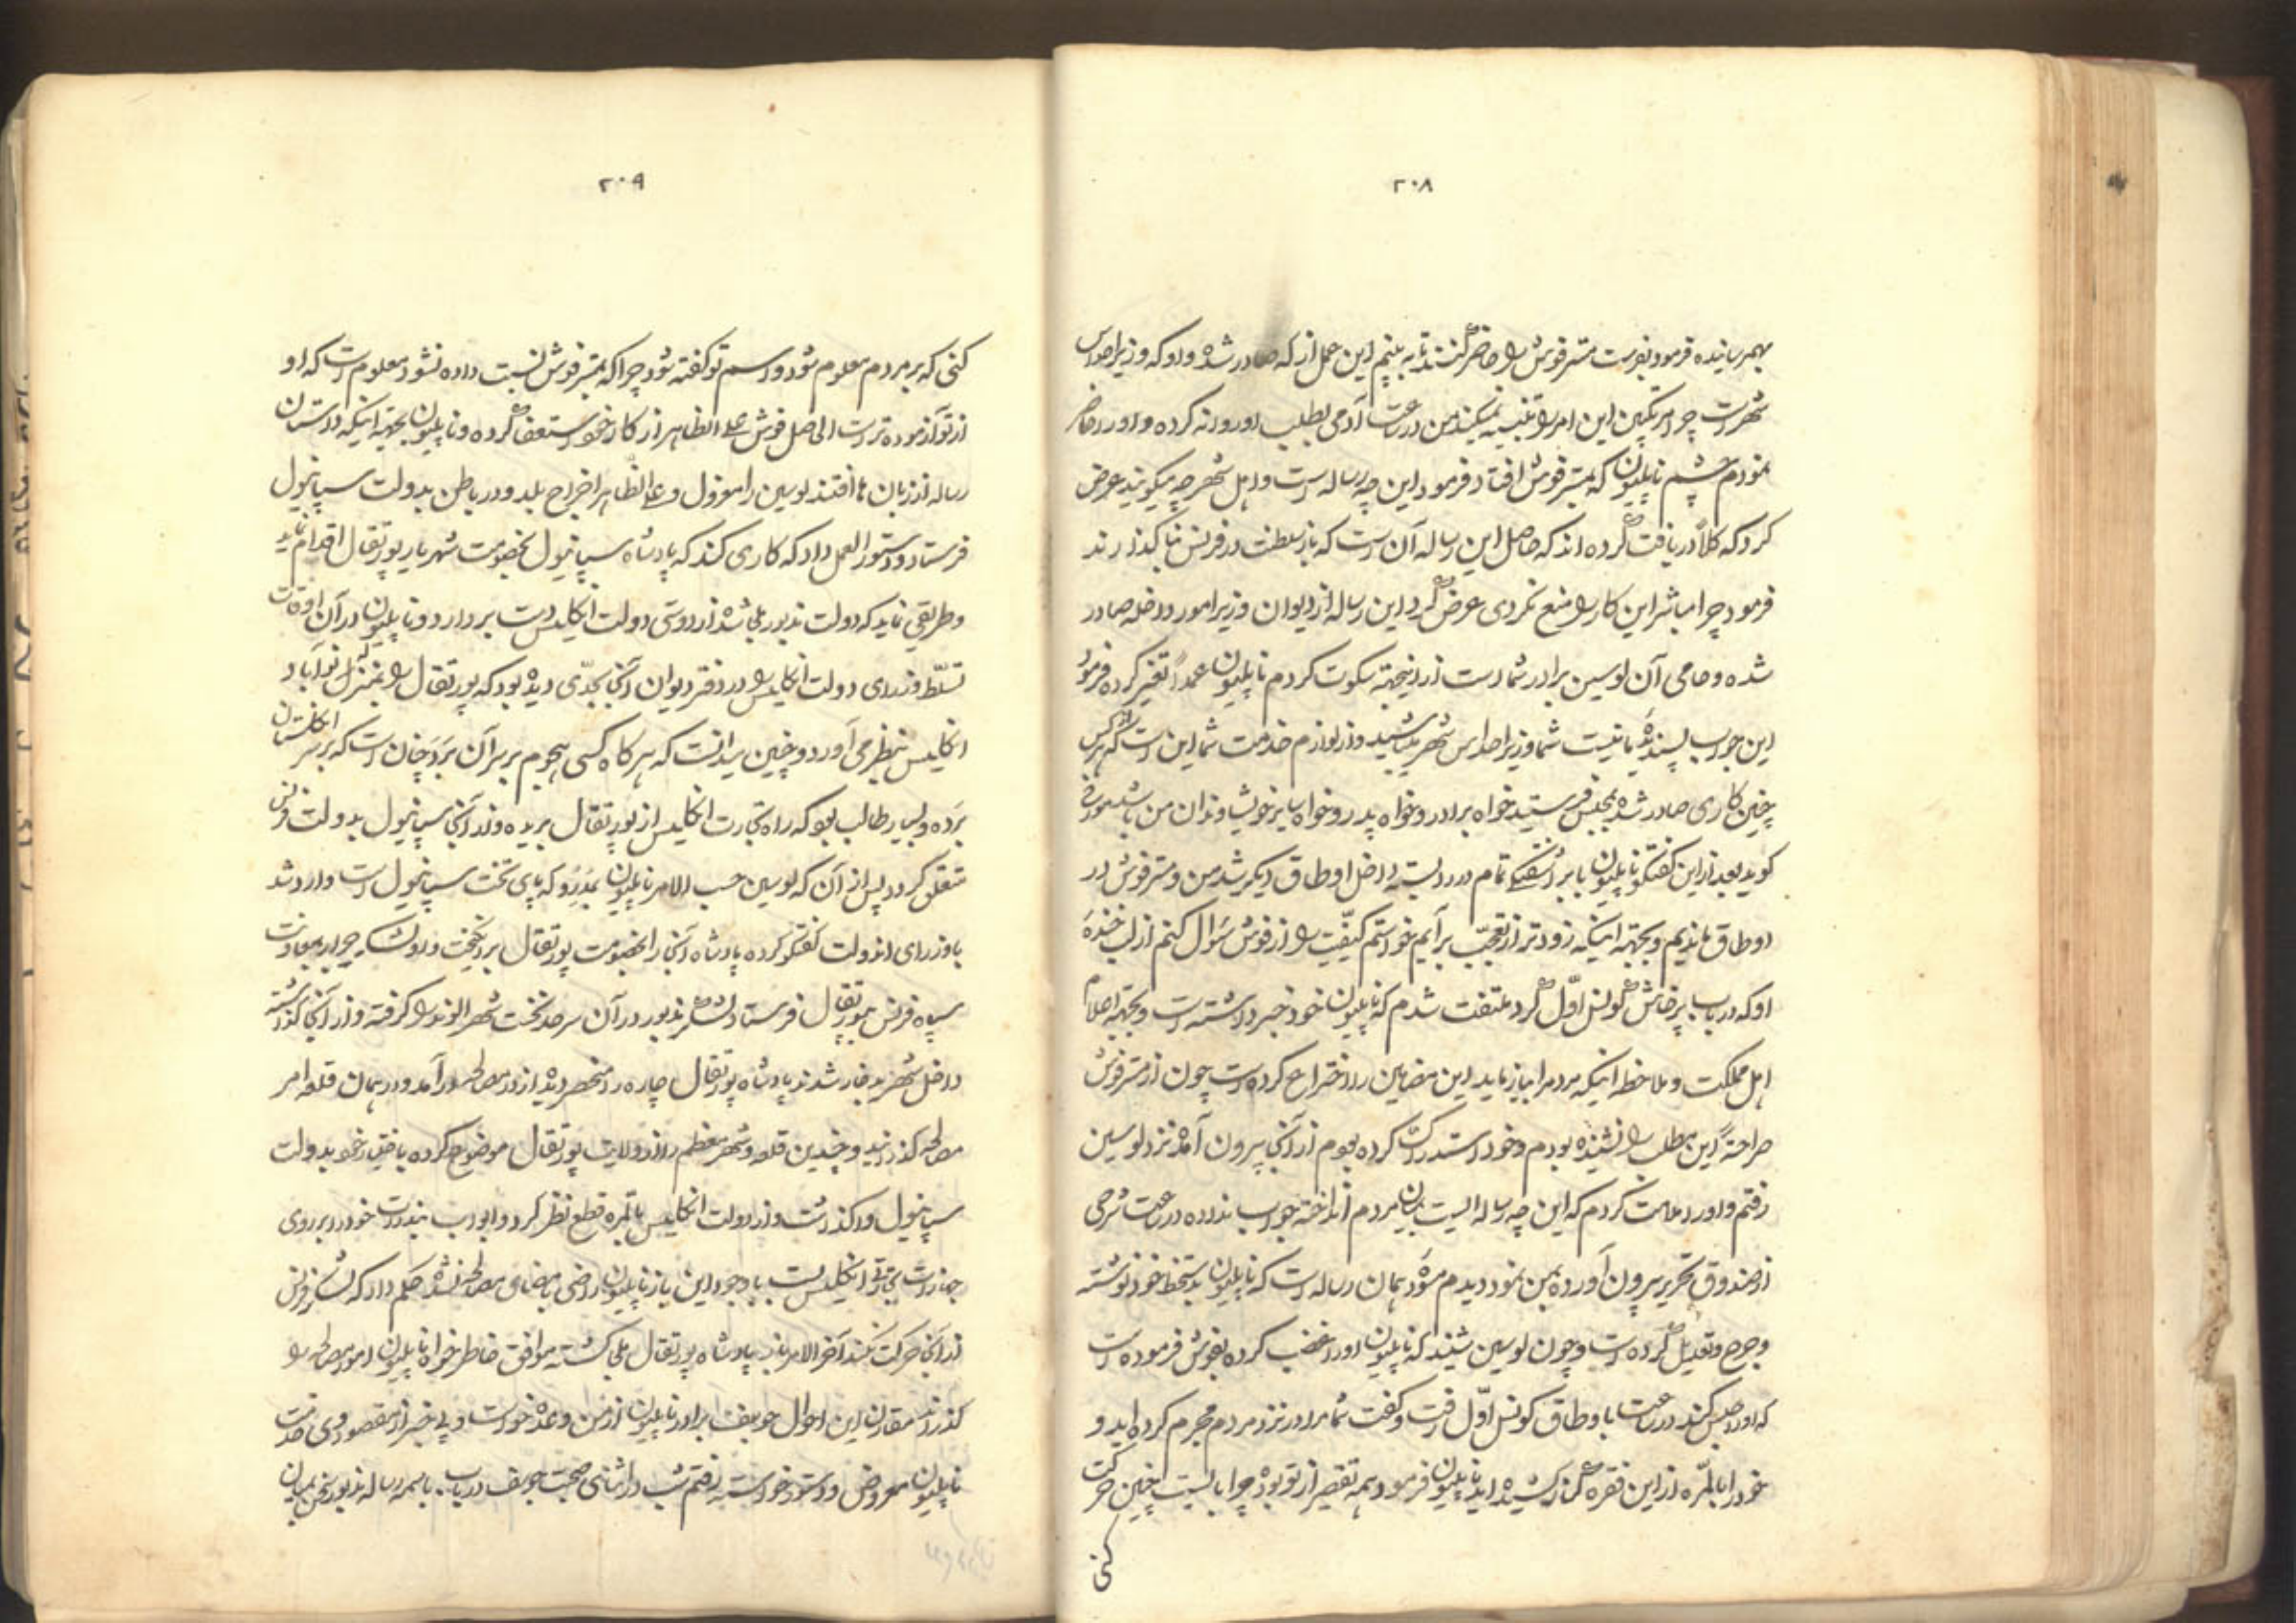 ۲۰۸
بهمرسانیده فرمود بفرست مستر فوش را حاضر کنند تا به بینم این عمل از که صادر شده و او که وزیر احداس
شهر است چرا مرتکبین این امر را تنبیه نمیکند من در ساعت آدمی بطلب او روانه کرده و او را حاضر
نمودم چشم ناپلیون که بمستر فوش افتاد فرمود این چه رساله است و اهل شهر چه میگویند عرض
کرد که کلاً دریافت کرده اند که حاصل این رساله آن است که باز سلطنت در فرنس بنا گذارند
فرمود چرا مباشر این کار را منع نکردی عرض کرد این رساله از دیوان وزیر امور داخله صادر
شده و حامی آن لوسین برادر شما است از اینجهته سکوت کردم ناپلیون عمداً تغیر کرده فرمود
این جواب پسندیده ما نیست شما وزیر احداس شهر میباشید و از لوازم خدمت شما این است که از هر کس
چنین کاری صادر شده بمحبس فرستید خواه برادر و خواه پدر و خواه سایر خویشاوندان من باشد مورخ
گوید بعد از این گفتگو ناپلیون با بر آشفتگی تمام در را بسته داخل اوطاق دیگر شد من و مستر فوش در
اوطاق ماندیم و بجهته اینکه زودتر از تعجب برآیم خواستم کیفیت را از فوش سؤال کنم از لب خنده
او که در باب پرخاش کونسل اول کرد ملتفت شدم که ناپلیون خود خبر داشته است و بجهته اعلام
اهل مملکت و ملاحظه اینکه مردم را بیازماید این مضامین را اختراع کرده است چون از مستر فوش
صراحةً این مطلب را نشنیده بودم و خود استدراک کرده بودم از آنجا بیرون آمده نزد لوسین
رفتم و او را ملامت کردم که این چه رساله ایست بمیان مردم انداخته جواب نداده در ساعت شرحی
از صندوق تحریر بیرون آورده بمن نمود دیدم مسوده همان رساله است که ناپلیون بدستخط خود نوشته
و جرح و تعدیل کرده است و چون لوسین شنید که ناپلیون او را غضب کرده بفوش فرموده است
که او را حبس کند در ساعت با وطاق کونسل اول رفت و گفت شما مرا در نزد مردم مجرم کرده اید و
خود را بالمره از این فقره کنار کشیده اید ناپلیون فرمود همه تقصیر از تو بوده چرا بایست چنین حرکت
کنی
۲۰۹
کنی که بر مردم معلوم شود و اسم تو گفته شود چرا که بمستر فوش نسبت داده نشود معلوم است که او
از تو آزموده تر است الحاصل فوش علی الظاهر از کار خود استعفا کرده و ناپلیون بجهته اینکه داستان
رساله از زبان ها افتند لوسین را معزول و علی الظاهر اخراج بلد و در باطن بدولت سپانیول
فرستاد و دستور العمل داد که کاری کند که پادشاه سپانیول بخصومت شهریار پورتقال اقدام نماید
و طریقی نماید که دولت مذبور ملجا شده از دوستی دولت انگلیس دست بردارد و ناپلیون در آن اوقات
تسلط وزرای دولت انگلیس را در دفتر دیوان آنجا بحدی دیده بود که پورتقال را بمنزله نو آباد
انگلیس بنظر می آورد و چنین میدانست که هر گاه کسی هجوم بر سر آن برد چنان است که بر سر انگلستان
برده و بسیار طالب بود که راه تجارت انگلیس از پورتقال بریده و از آنجا سپانیول بدولت فرنس
متعلق گردد پس از آن که لوسین حسب الامر ناپلیون بمدرد که پای تخت سپانیول است وارد شد
با وزرای اندولت گفتگو کرده پادشاه آنجا را بخصومت پورتقال برانگیخت و او لشکر جرار بمعاونت
سپاه فرنس بپورتقال فرستاد لشکر مذبور در آن سرحد نخست شهر الوندا را گرفته و از آنجا گذشته
داخل شهر ید فار شدند پادشاه پورتقال چاره را منحصر دیده از در مصالحه در آمد و در همان قلعه امر
مصالحه گذرانید و چندین قلعه و شهر معظم را از ولایت پورتقال موضوع کرده باختیار خود بدولت
سپانیول وا گذاشت و از دولت انگلیس بالمره قطع نظر کرد و ابواب بندرات خود را بر روی
جهازات تجارتی انگلیس بست با وجود این باز ناپلیون راضی بامضای مصالحه نشده حکم داد که لشکر فرنس
از آنجا حرکت نکند آخر الامر باز پادشاه پورتقال ملجا گشته موافق خاطر خواه ناپلیون امور مصالحه را
گذراند مقارن این احوال جوسف برادر ناپلیون از من وعده خواست و بی خبر از مقصود وی خدمت
ناپلیون معروض و دستور خواسته رفتم شب در اثنای صحبت جوسف در باب باسمه رساله مذبور سخن بمیان